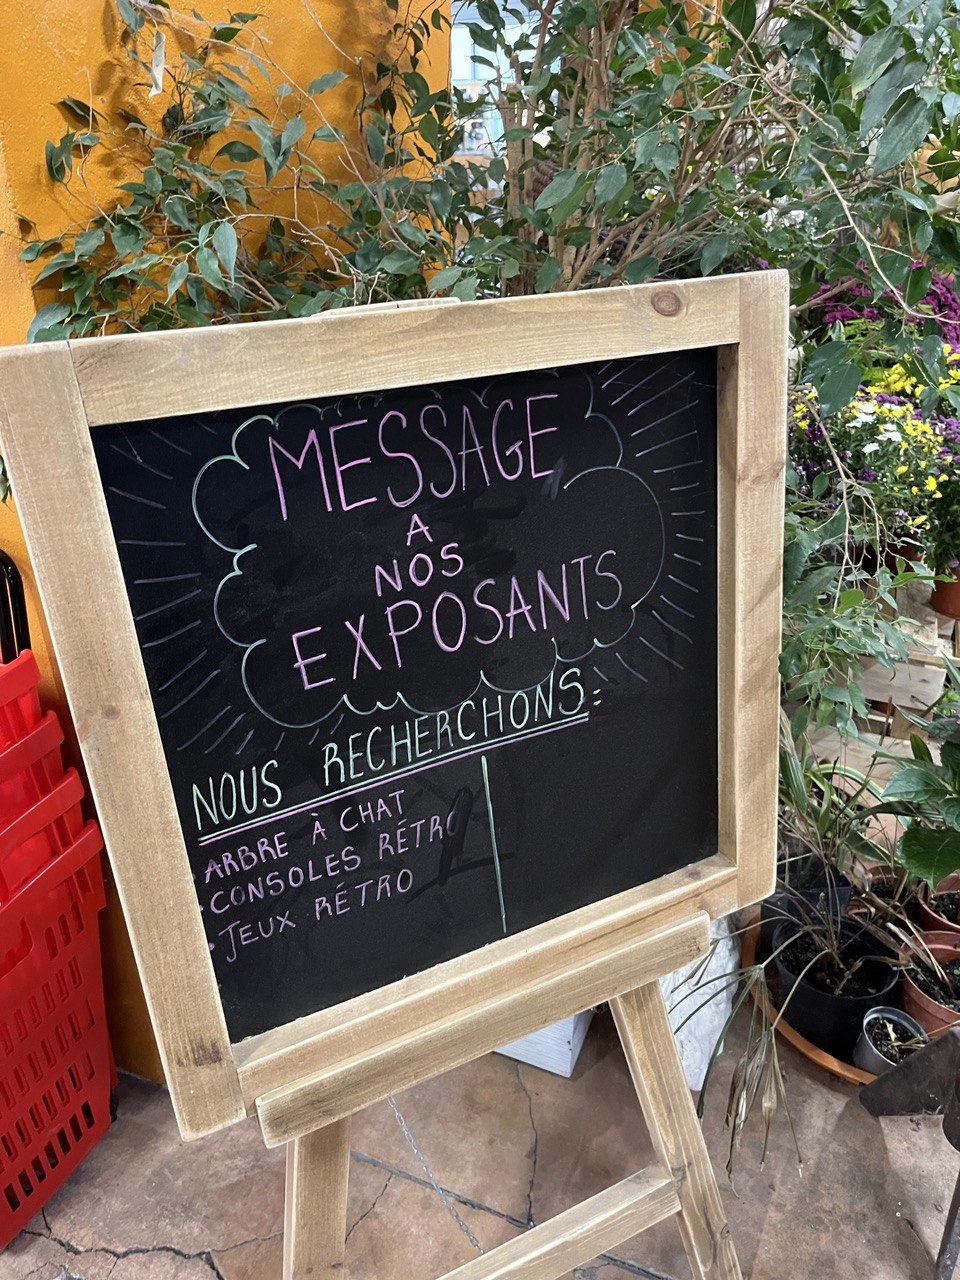 MESSAGE
A
NOS
EXPOSANTS
NOUS RECHERCHONS:
• ARBRE À CHAT
• CONSOLES RÉTRO
• JEUX RÉTRO